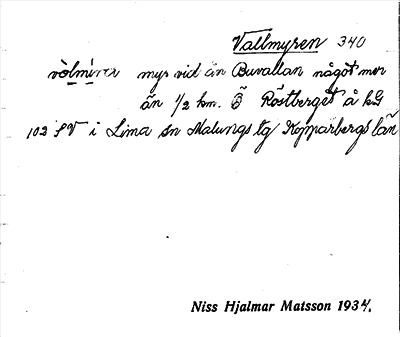 Vallmyren 340
vòlmìrer myr vid än Buvallan något mer
än 1/2 km. Ö Röstberget å kG
102 SV i Lima sn Malungs tg Kopparbergs län
Niss Hjalmar Matsson 1934.